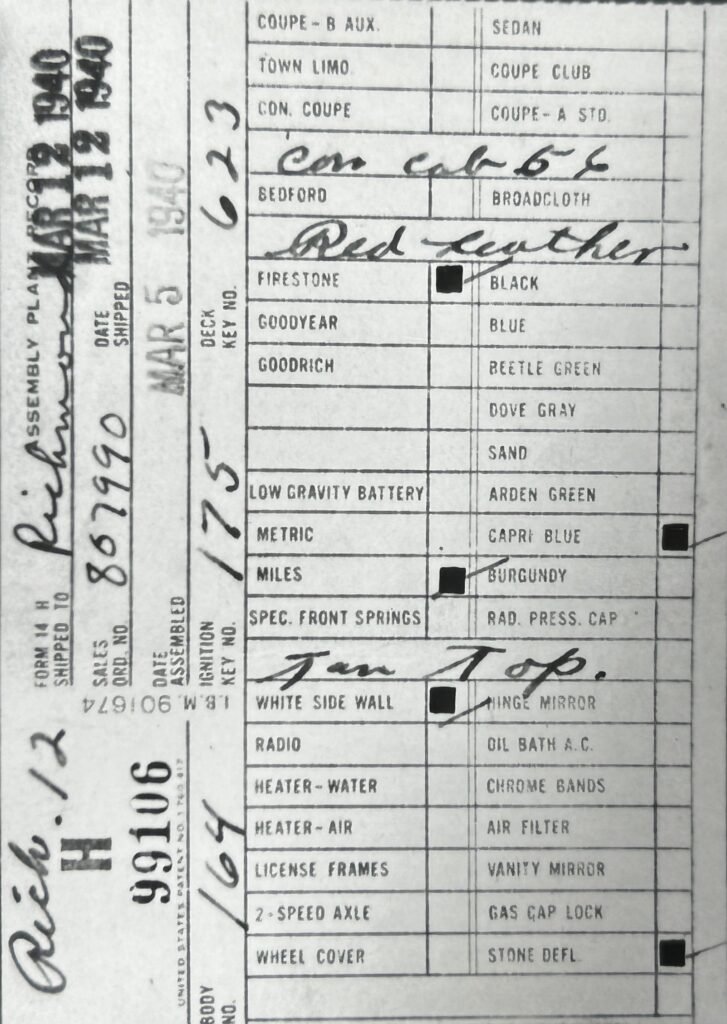 COUPE-B AUX. SEDAN
TOWN LIMO. COUPE CLUB
CON. COUPE COUPE-A STD.
Con cab 56
BEDFORD BROADCLOTH
Red Leather
FIRESTONE BLACK
GOODYEAR BLUE
GOODRICH BEETLE GREEN
DOVE GRAY
SAND
LOW GRAVITY BATTERY ARDEN GREEN
METRIC CAPRI BLUE
MILES BURGUNDY
SPEC. FRONT SPRINGS RAD. PRESS. CAP
Tan Top.
WHITE SIDE WALL HINGE MIRROR
RADIO OIL BATH A.C.
HEATER-WATER CHROME BANDS
HEATER-AIR AIR FILTER
LICENSE FRAMES VANITY MIRROR
2-SPEED AXLE GAS CAP LOCK
WHEEL COVER STONE DEFL.
FORM 14 H ASSEMBLY PLANT RECORD
SHIPPED TO Richmond MAR 12 1940
SALES ORD. NO. 807990 DATE SHIPPED MAR 12 1940
DATE ASSEMBLED MAR 5 1940
IGNITION KEY NO. 175 DECK KEY NO. 623
I.B.M. 901674
Rich. 12
H
99106
UNITED STATES PATENT NO.
BODY NO. 164